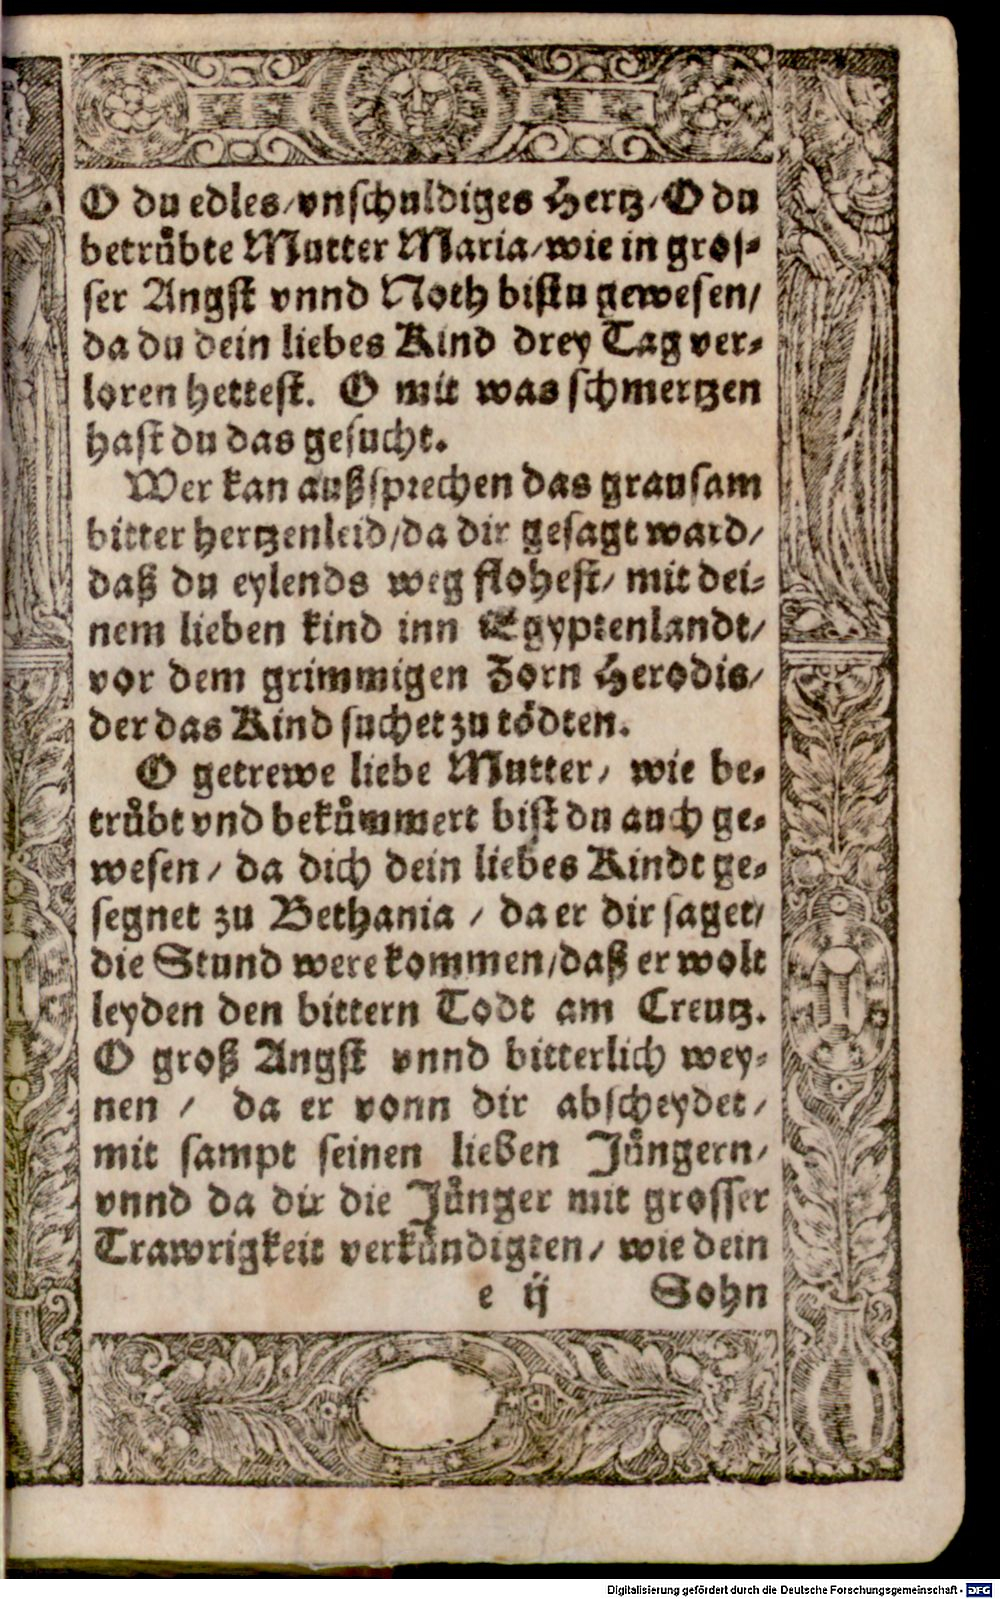 O du edles/vnschuldiges Hertz/O du
betrůbte Mutter Maria/wie in gros-
ser Angst vnnd Noth bistu gewesen/
da du dein liebes Kind drey Tag ver-
loren hettest. O mit was schmertzen
hast du das gesucht.
Wer kan außsprechen das grausam
bitter hertzenleid/da dir gesagt ward/
daß du eylends weg flohest/ mit dei-
nem lieben kind inn Egyptenlandt/
vor dem grimmigen Zorn Herodis/
der das Kind suchet zu tödten.
O getrewe liebe Mutter/ wie be-
trůbt vnd bekům̃mert bist du auch ge-
wesen/ da dich dein liebes Kindt ge-
segnet zu Bethania / da er dir saget/
die Stund were kommen/daß er wolt
leyden den bittern Todt am Creutz.
O groß Angst vnnd bitterlich wey-
nen / da er vonn dir abscheydet/
mit sampt seinen lieben Jůngern/
vnnd da dir die Jůnger mit grosser
Trawrigkeit verkůndigten/ wie dein
e ij Sohn
Digitalisierung gefördert durch die Deutsche Forschungsgemeinschaft - DFG